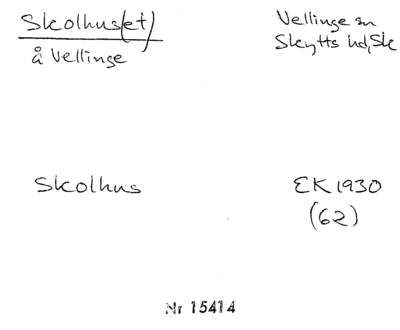 Skolhus(et)
å Vellinge
Vellinge sn
Skytts hd, Sk
Skolhus
EK 1930
(62)
Nr 15414